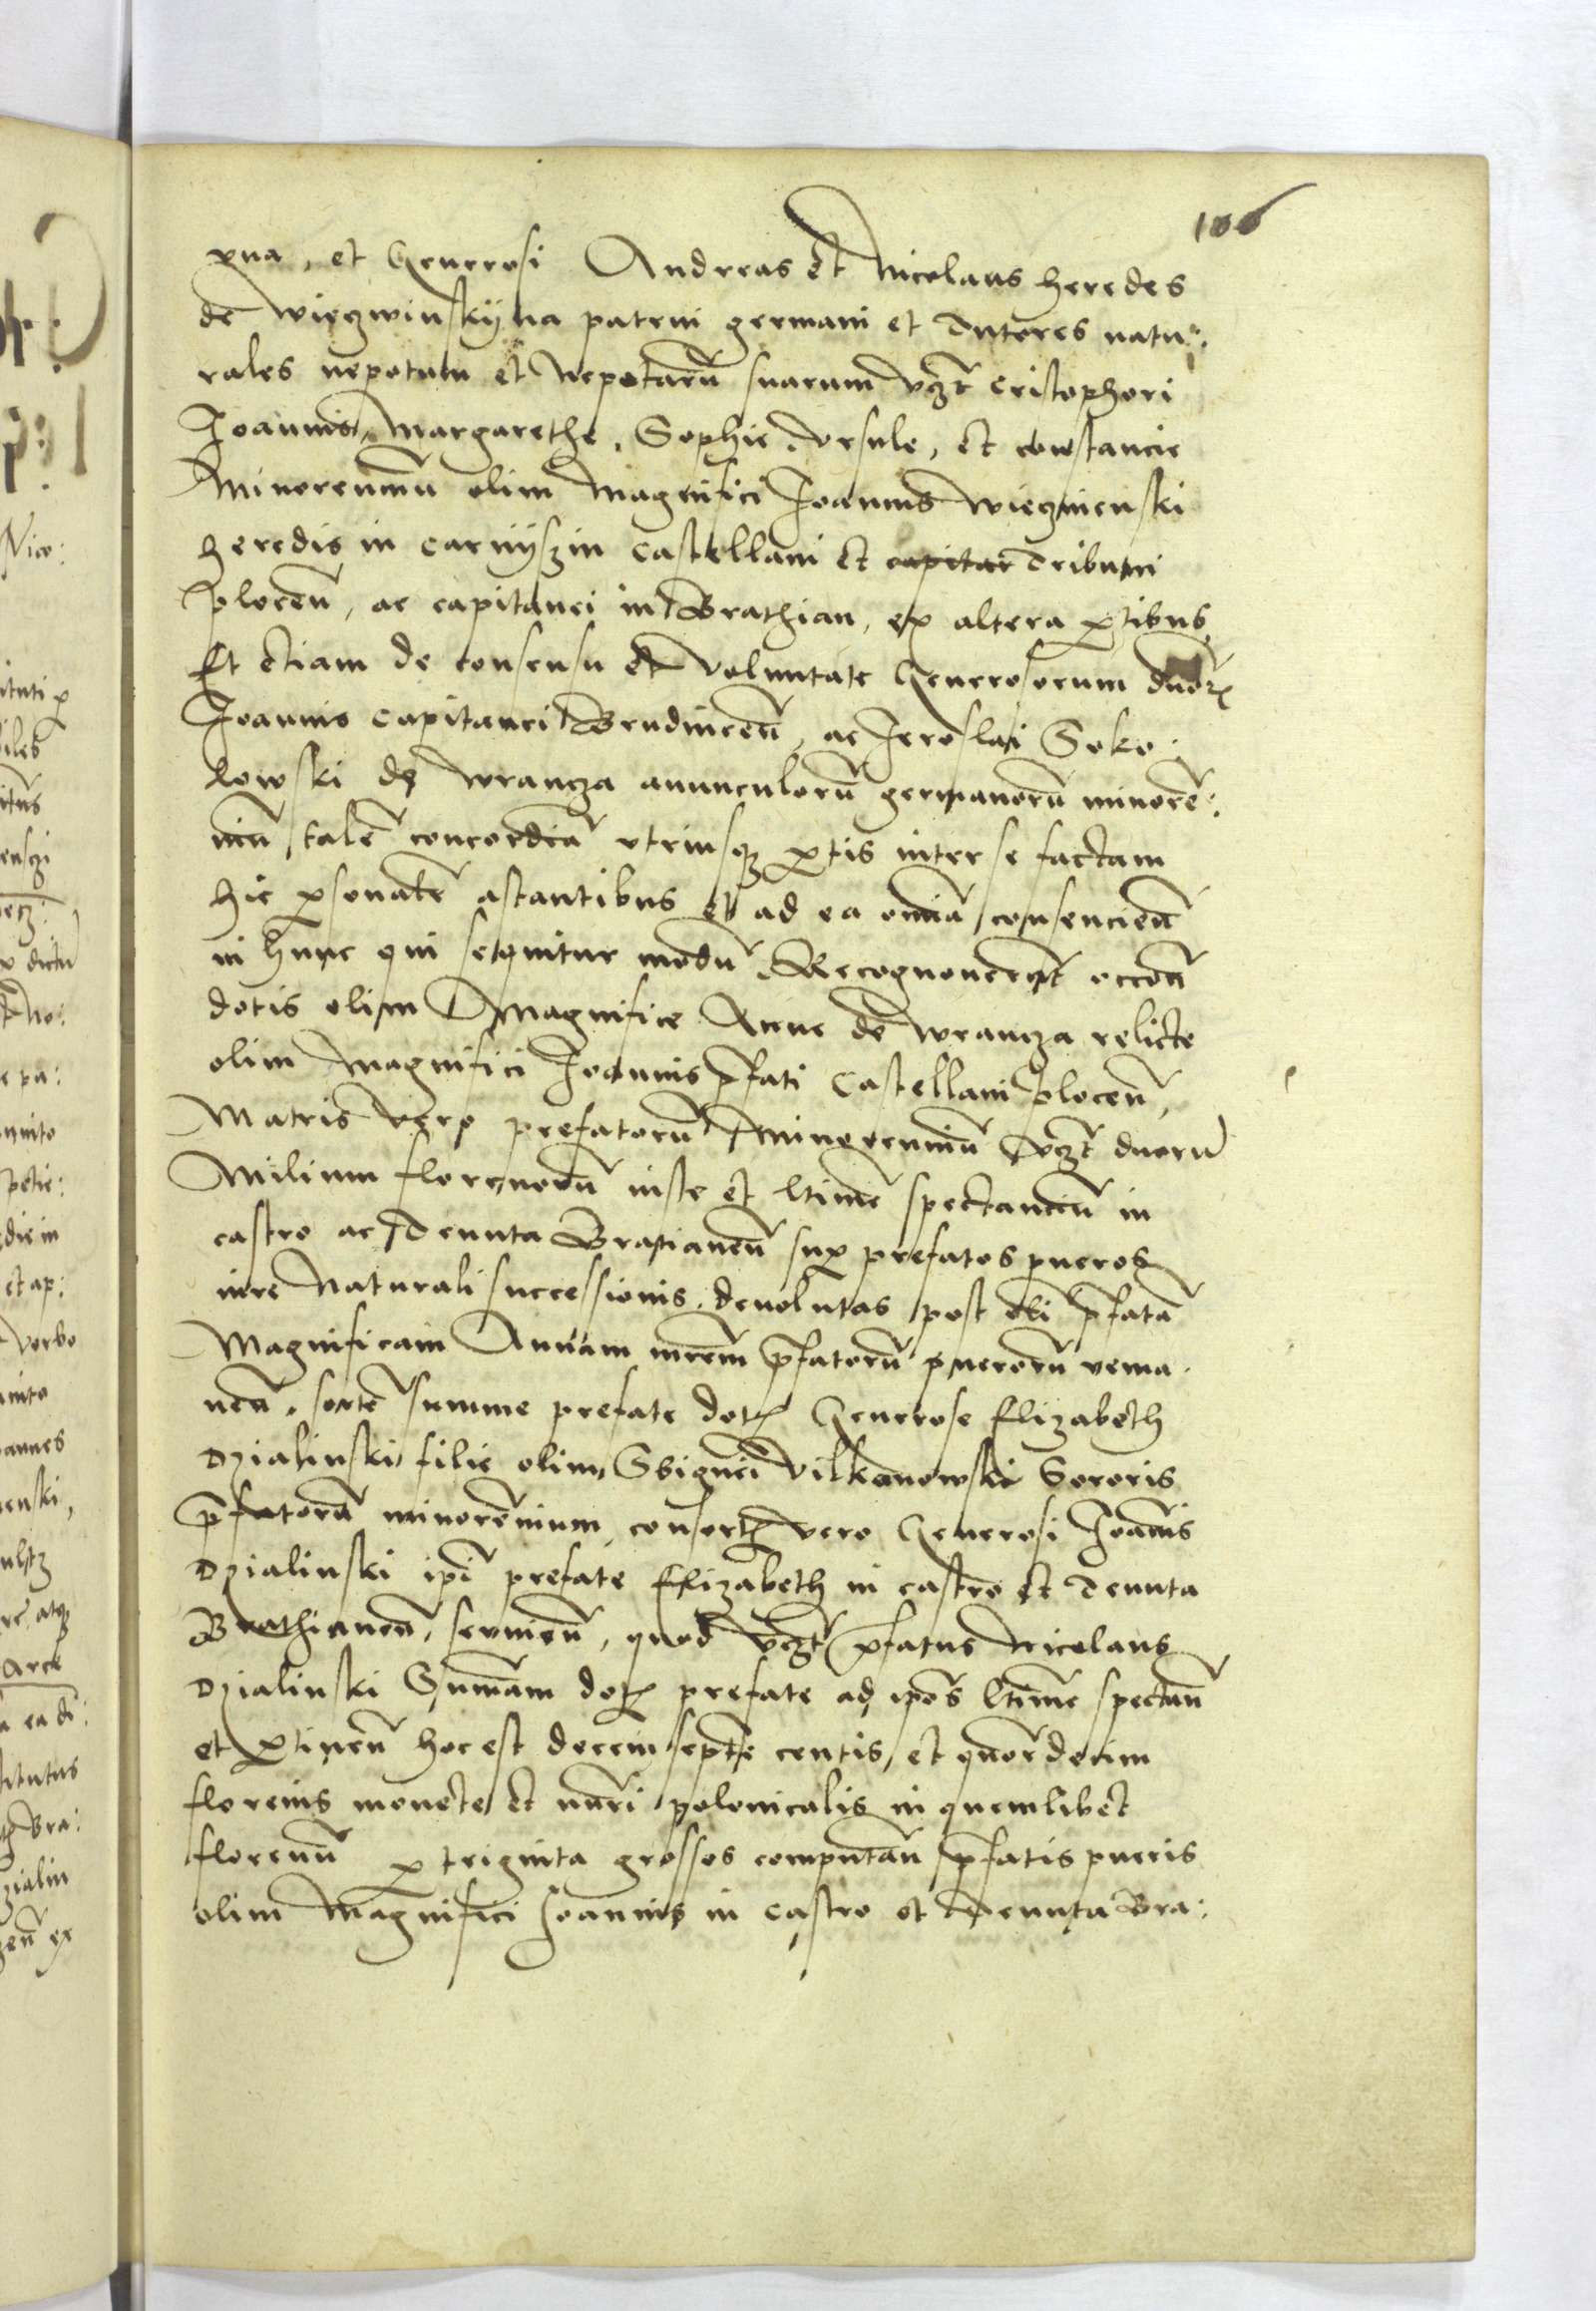 106
vna, et Generosi Andreas et Nicolaus heredes
de Wieczwinskÿ na patrui germani et Tutores natu:
rales nepotum et Nepotarū suarum vczt cristophori
Joannis, Margarethe, Sophie, Vrsule, et constancie
Minorennium olim Magnifici Joannis Wieczwienski
heredis in carnÿszin castellani et capitan Tribuni
plocen̄, ac capitanei in Brathian, ex altera ptibus
Et etiam de consensu et voluntate Generosorum dnor
Joannis capitanei Brudnicen̄, ac Jeroslai Soko:
lowski de wrancza auunculorū germanorū minorē:
niū talē concordiā vtriusqz ptis inter se factam
hic psonalr̄ astantibus et ad ea omnia consencien̄
in hunc qui sequitur modū Recognouerūt occōn
dotis olim Magnifice Anne de wrancza relicte
olim Magnifici Joannis pfati Castellani plocen̄,
Matris vero prefatorū Minorenniū vczt duorū
Milium florenorū iuste et ltīme spectanciū in
castro ac Tenuta Bratianen̄ sup prefatos pueros
iure naturali successionis, deuolutas post obi pfatā
Magnificam Annam mrēm pfatorū puerorū rema:
nen̄, sortē summe prefate dot Generose Elizabeth
Dzialinski filie olim Sbignei Vilkanowski Sororis
pfatorū minorēnium, consort vero Generosi Joānis
Dzialinski ipī prefate Elizabeth in castro et Tenuta
Brathianen̄, seruien̄, quod vczt pfatus Nicolaus
Dzialinski Sumām dot prefate ad ipos ltīme spectan̄
et ptinen̄ hoc est decem septē centis, et quordecim
florenis monete et nūri polonicalis in quemlibet
florenū p triginta grossos computan̄ pfatis pueris
olim Magnifici Joannis in castro et Tenuta Bra: